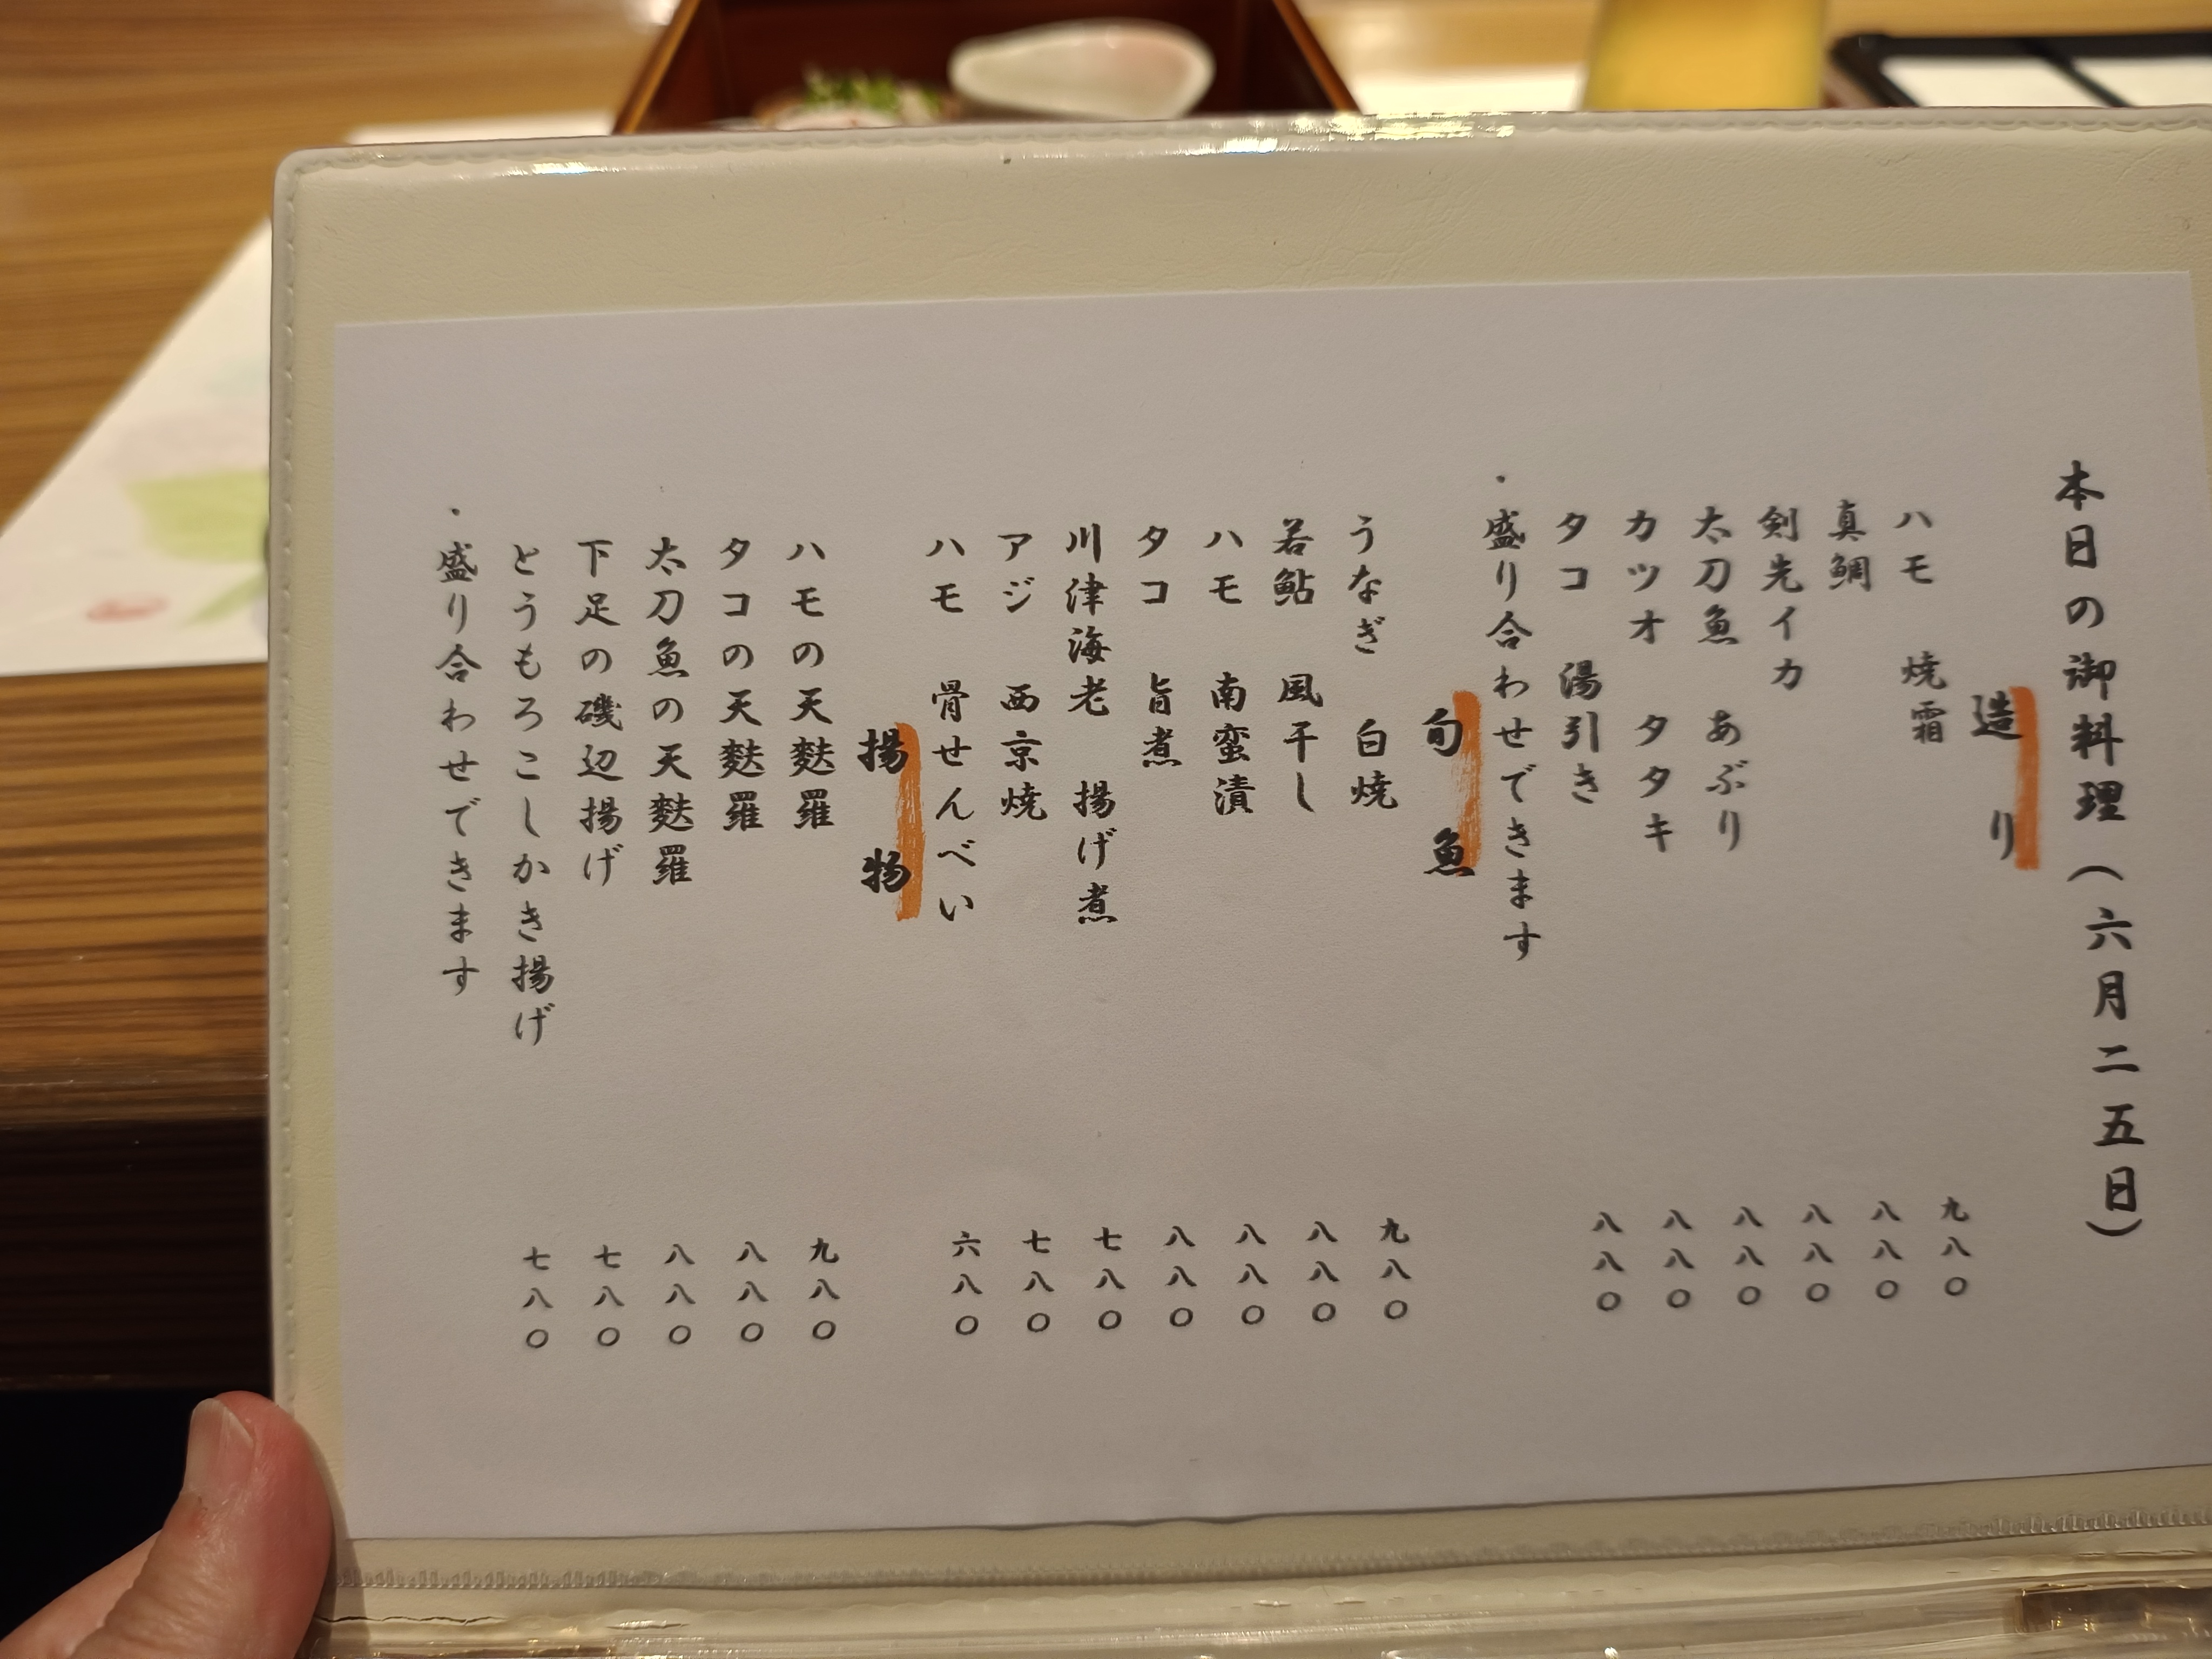 本日の御料理(六月二五日)
造り
ハモ 焼霜 九八〇
真鯛 八八〇
剣先イカ 八八〇
太刀魚 あぶり 八八〇
カツオ タタキ 八八〇
タコ 湯引き 八八〇
・盛り合わせできます
旬魚
うなぎ 白焼 九八〇
若鮎 風干し 八八〇
ハモ 南蛮漬 八八〇
タコ 旨煮 八八〇
川津海老 揚げ煮 七八〇
アジ 西京焼 七八〇
ハモ 骨せんべい 六八〇
揚物
ハモの天麩羅 九八〇
タコの天麩羅 八八〇
太刀魚の天麩羅 八八〇
下足の磯辺揚げ 七八〇
とうもろこしかき揚げ 七八〇
・盛り合わせできます